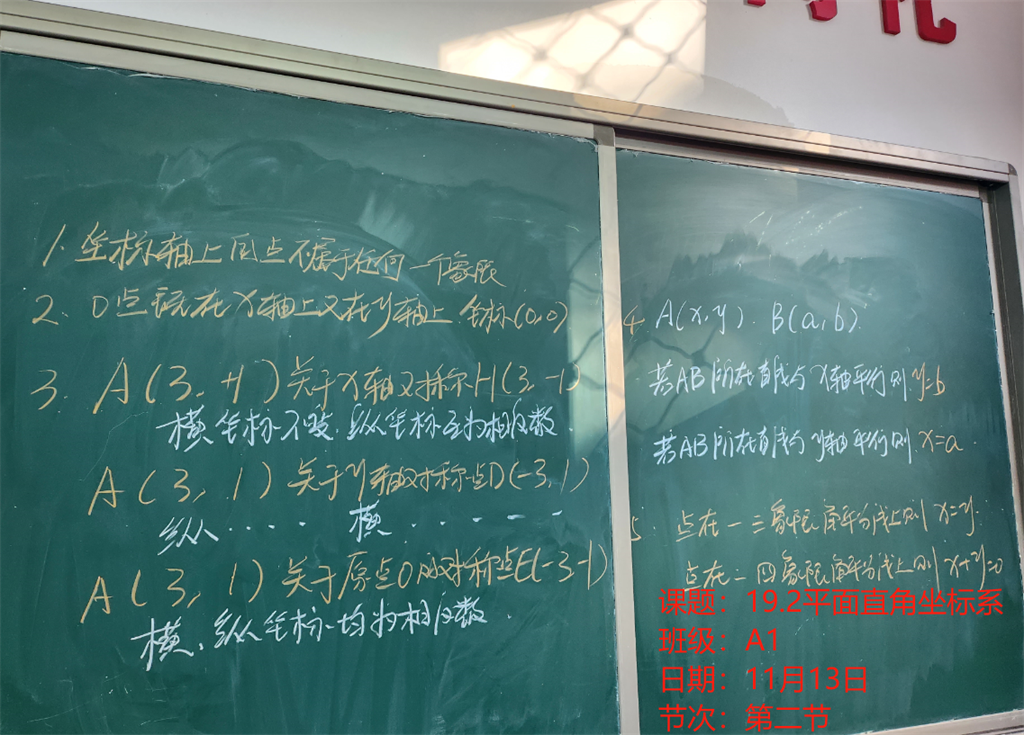 1. 坐标轴上的点不属于任何一个象限
2. O点既在x轴上又在y轴上 坐标(0,0)
3. A(3,+1)关于x轴对称H(3,-1)
横坐标不变.纵坐标互为相反数.
A(3,1)关于y轴对称点D(-3,1)
纵···· 横······
A(3,1)关于原点O成对称点E(-3-1)
横、纵坐标均为相反数.
4 A(x,y). B(a,b).
若AB所在直线与x轴平行则y=b
若AB所在直线与y轴平行则.x=a
5. 点在一三象限角平分线上则x=y.
点在二四象限角平分线上则x+y=0
课题：19.2平面直角坐标系
班级：A1
日期：11月13日
节次：第二节